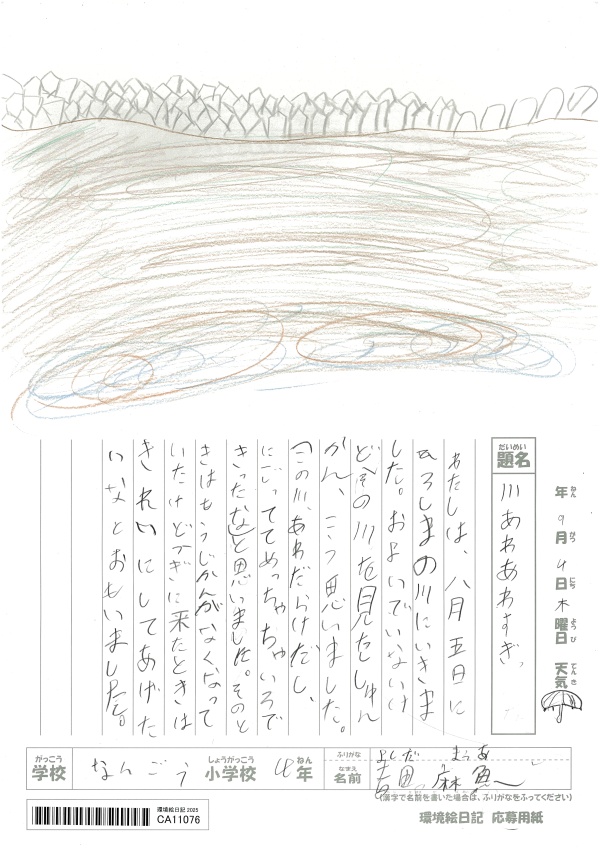 年 9月 4日 木曜日 天気
ねん がつ にち ようび てんき
だいめい
題名
川あわあわすぎ。
わたしは、八月五日に
ひろしまの川にいきま
した。およいでいないけ
どその川を見たしゅん
かん、こう思いました。
(この川、あわだらけだし、
にごっててめっちゃちゃいろで
きったな)と思いました。そのと
きはもうじかんがなくなって
いたけどつぎに来たときは
きれいにしてあげた
いなとおもいました。
がっこう
学校
なんごう
しょうがっこう
小学校
4
ねん
年
ふりがな
よしだ
なまえ
名前
吉田 麻
(漢字で名前を書いた場合は、ふりがなをふってください)
環境絵日記 2025
CA11076
環境絵日記 応募用紙